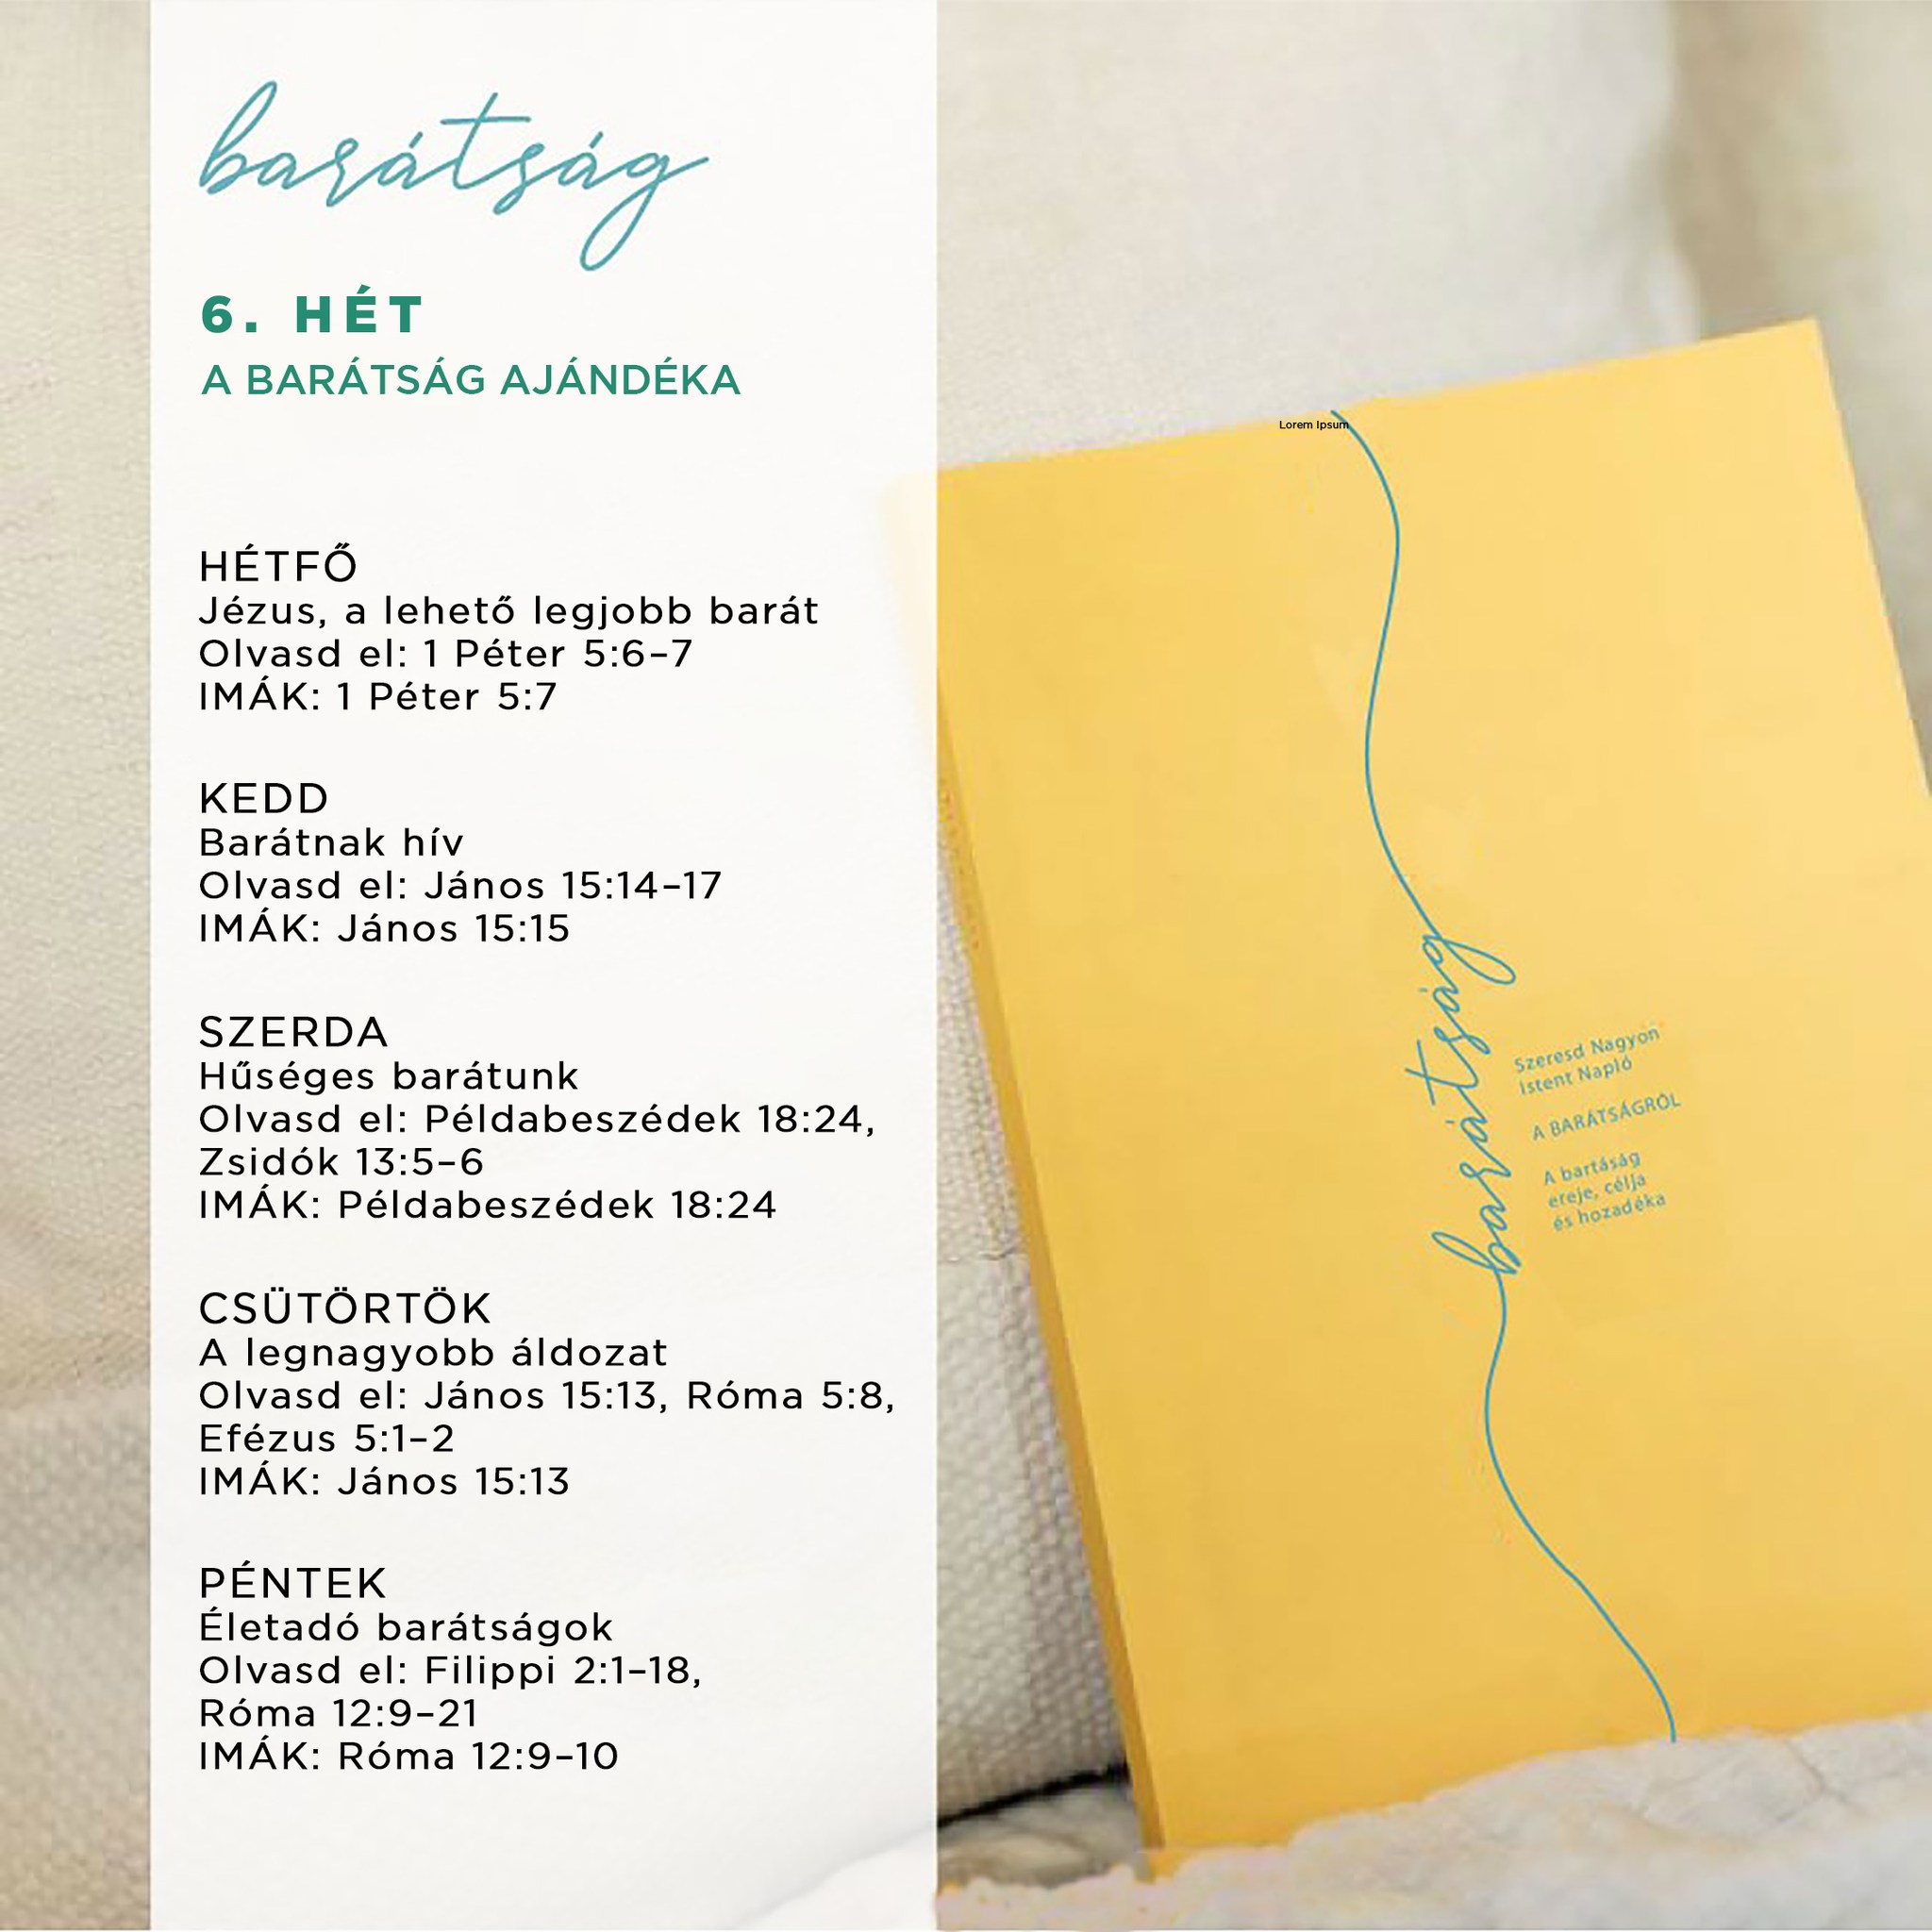 barátság
6. HÉT
A BARÁTSÁG AJÁNDÉKA
HÉTFŐ
Jézus, a lehető legjobb barát
Olvasd el: 1 Péter 5:6–7
IMÁK: 1 Péter 5:7
KEDD
Barátnak hív
Olvasd el: János 15:14–17
IMÁK: János 15:15
SZERDA
Hűséges barátunk
Olvasd el: Példabeszédek 18:24,
Zsidók 13:5–6
IMÁK: Példabeszédek 18:24
CSÜTÖRTÖK
A legnagyobb áldozat
Olvasd el: János 15:13, Róma 5:8,
Efézus 5:1–2
IMÁK: János 15:13
PÉNTEK
Életadó barátságok
Olvasd el: Filippi 2:1–18,
Róma 12:9–21
IMÁK: Róma 12:9–10
Lorem Ipsum
barátság
Szeresd Nagyon
Istent Napló
A BARÁTSÁGRÓL
A bartáság
ereje, célja
és hozadéka